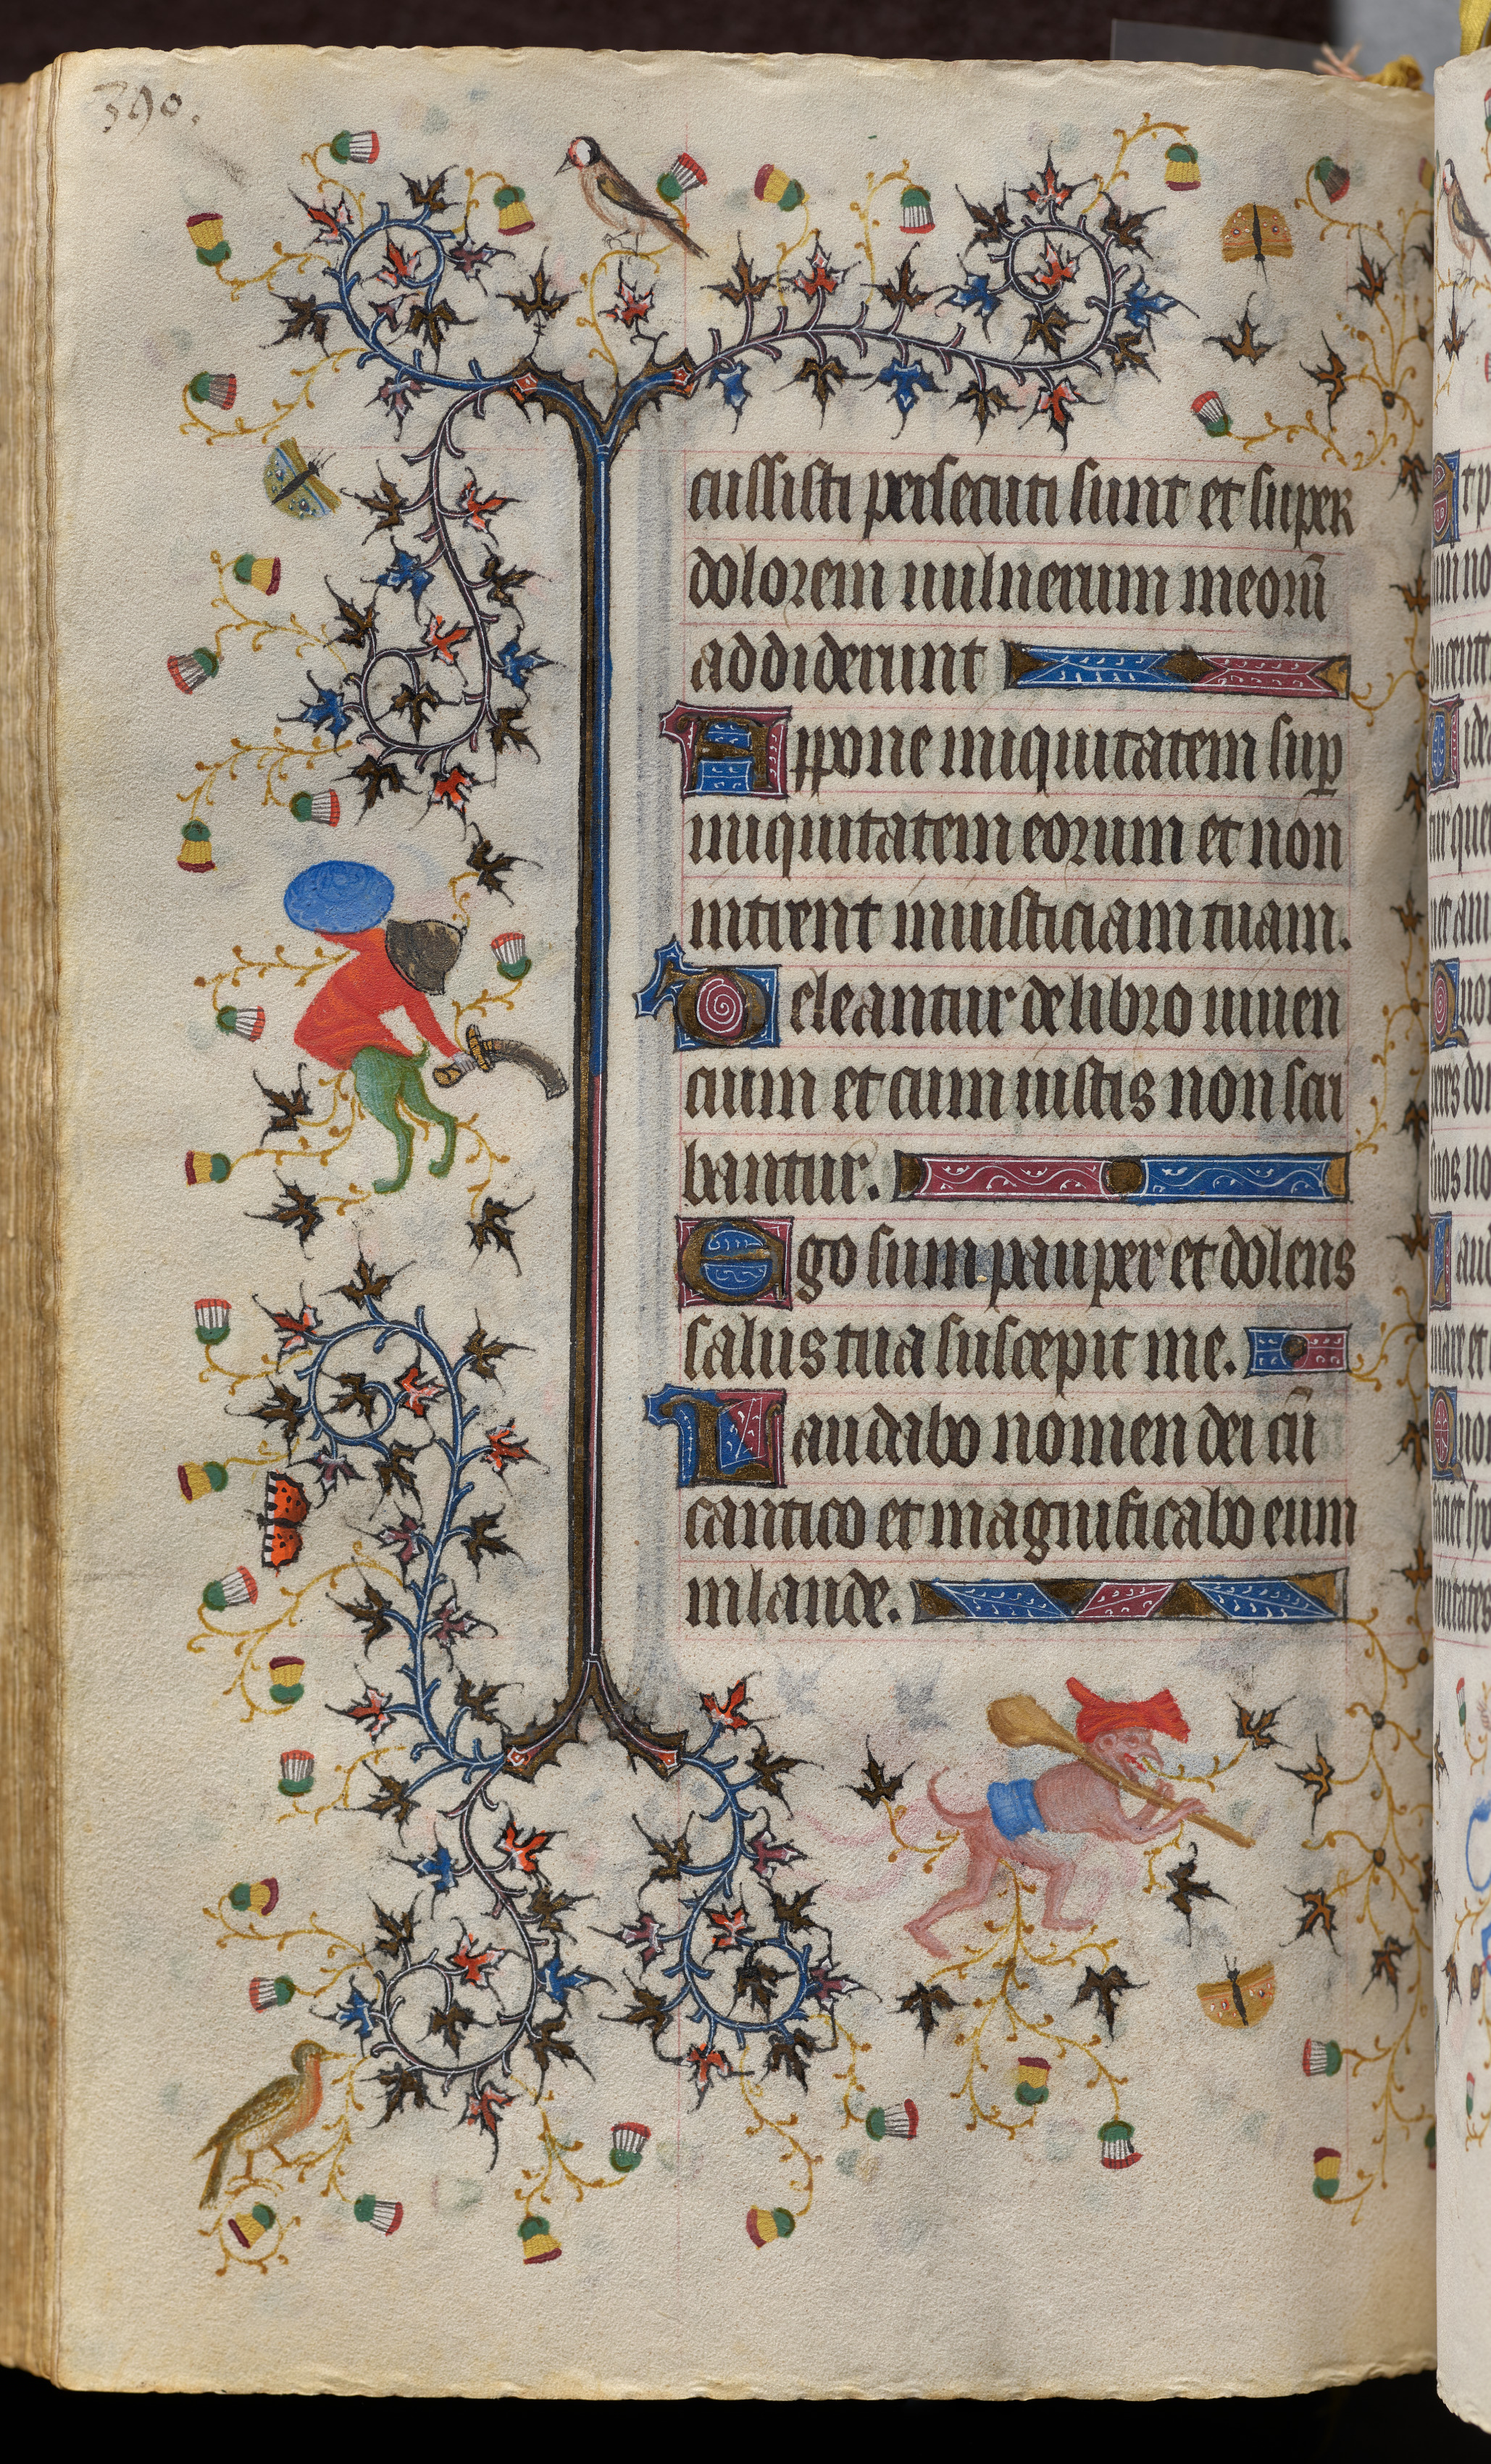 390.
cussisti persecuti sunt et super
dolorem uulnerum meorū
addiderunt
Appone iniquitatem sup̱
iniquitatem eorum et non
intrent in iusticiam tuam.
Deleantur de libro uiuen
cium et cum iustis non scri
bantur.
Ego sum pauper et dolens
salus tua suscepit me.
Laudabo nomen dei cū
cantico et magnificabo eum
in laude.